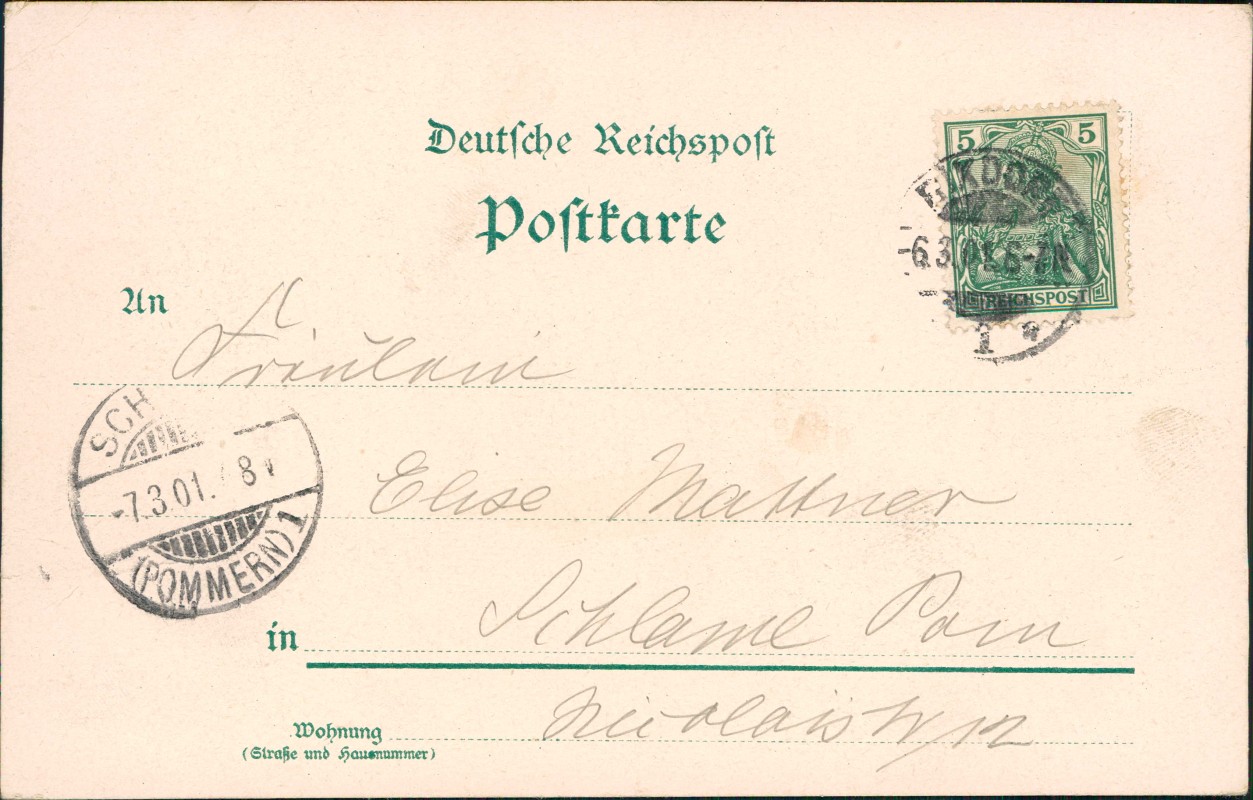 Deutsche Reichspost
Postkarte
5 5
6.3.01. 6-7N
REICHSPOST
1 *
An
Fräulein
SCH
-7.3.01. 8
(POMMERN) 1
Elise Mattner
in Schlawe Pom
Nicolaistr 12
Wohnung
(Straße und Hausnummer)